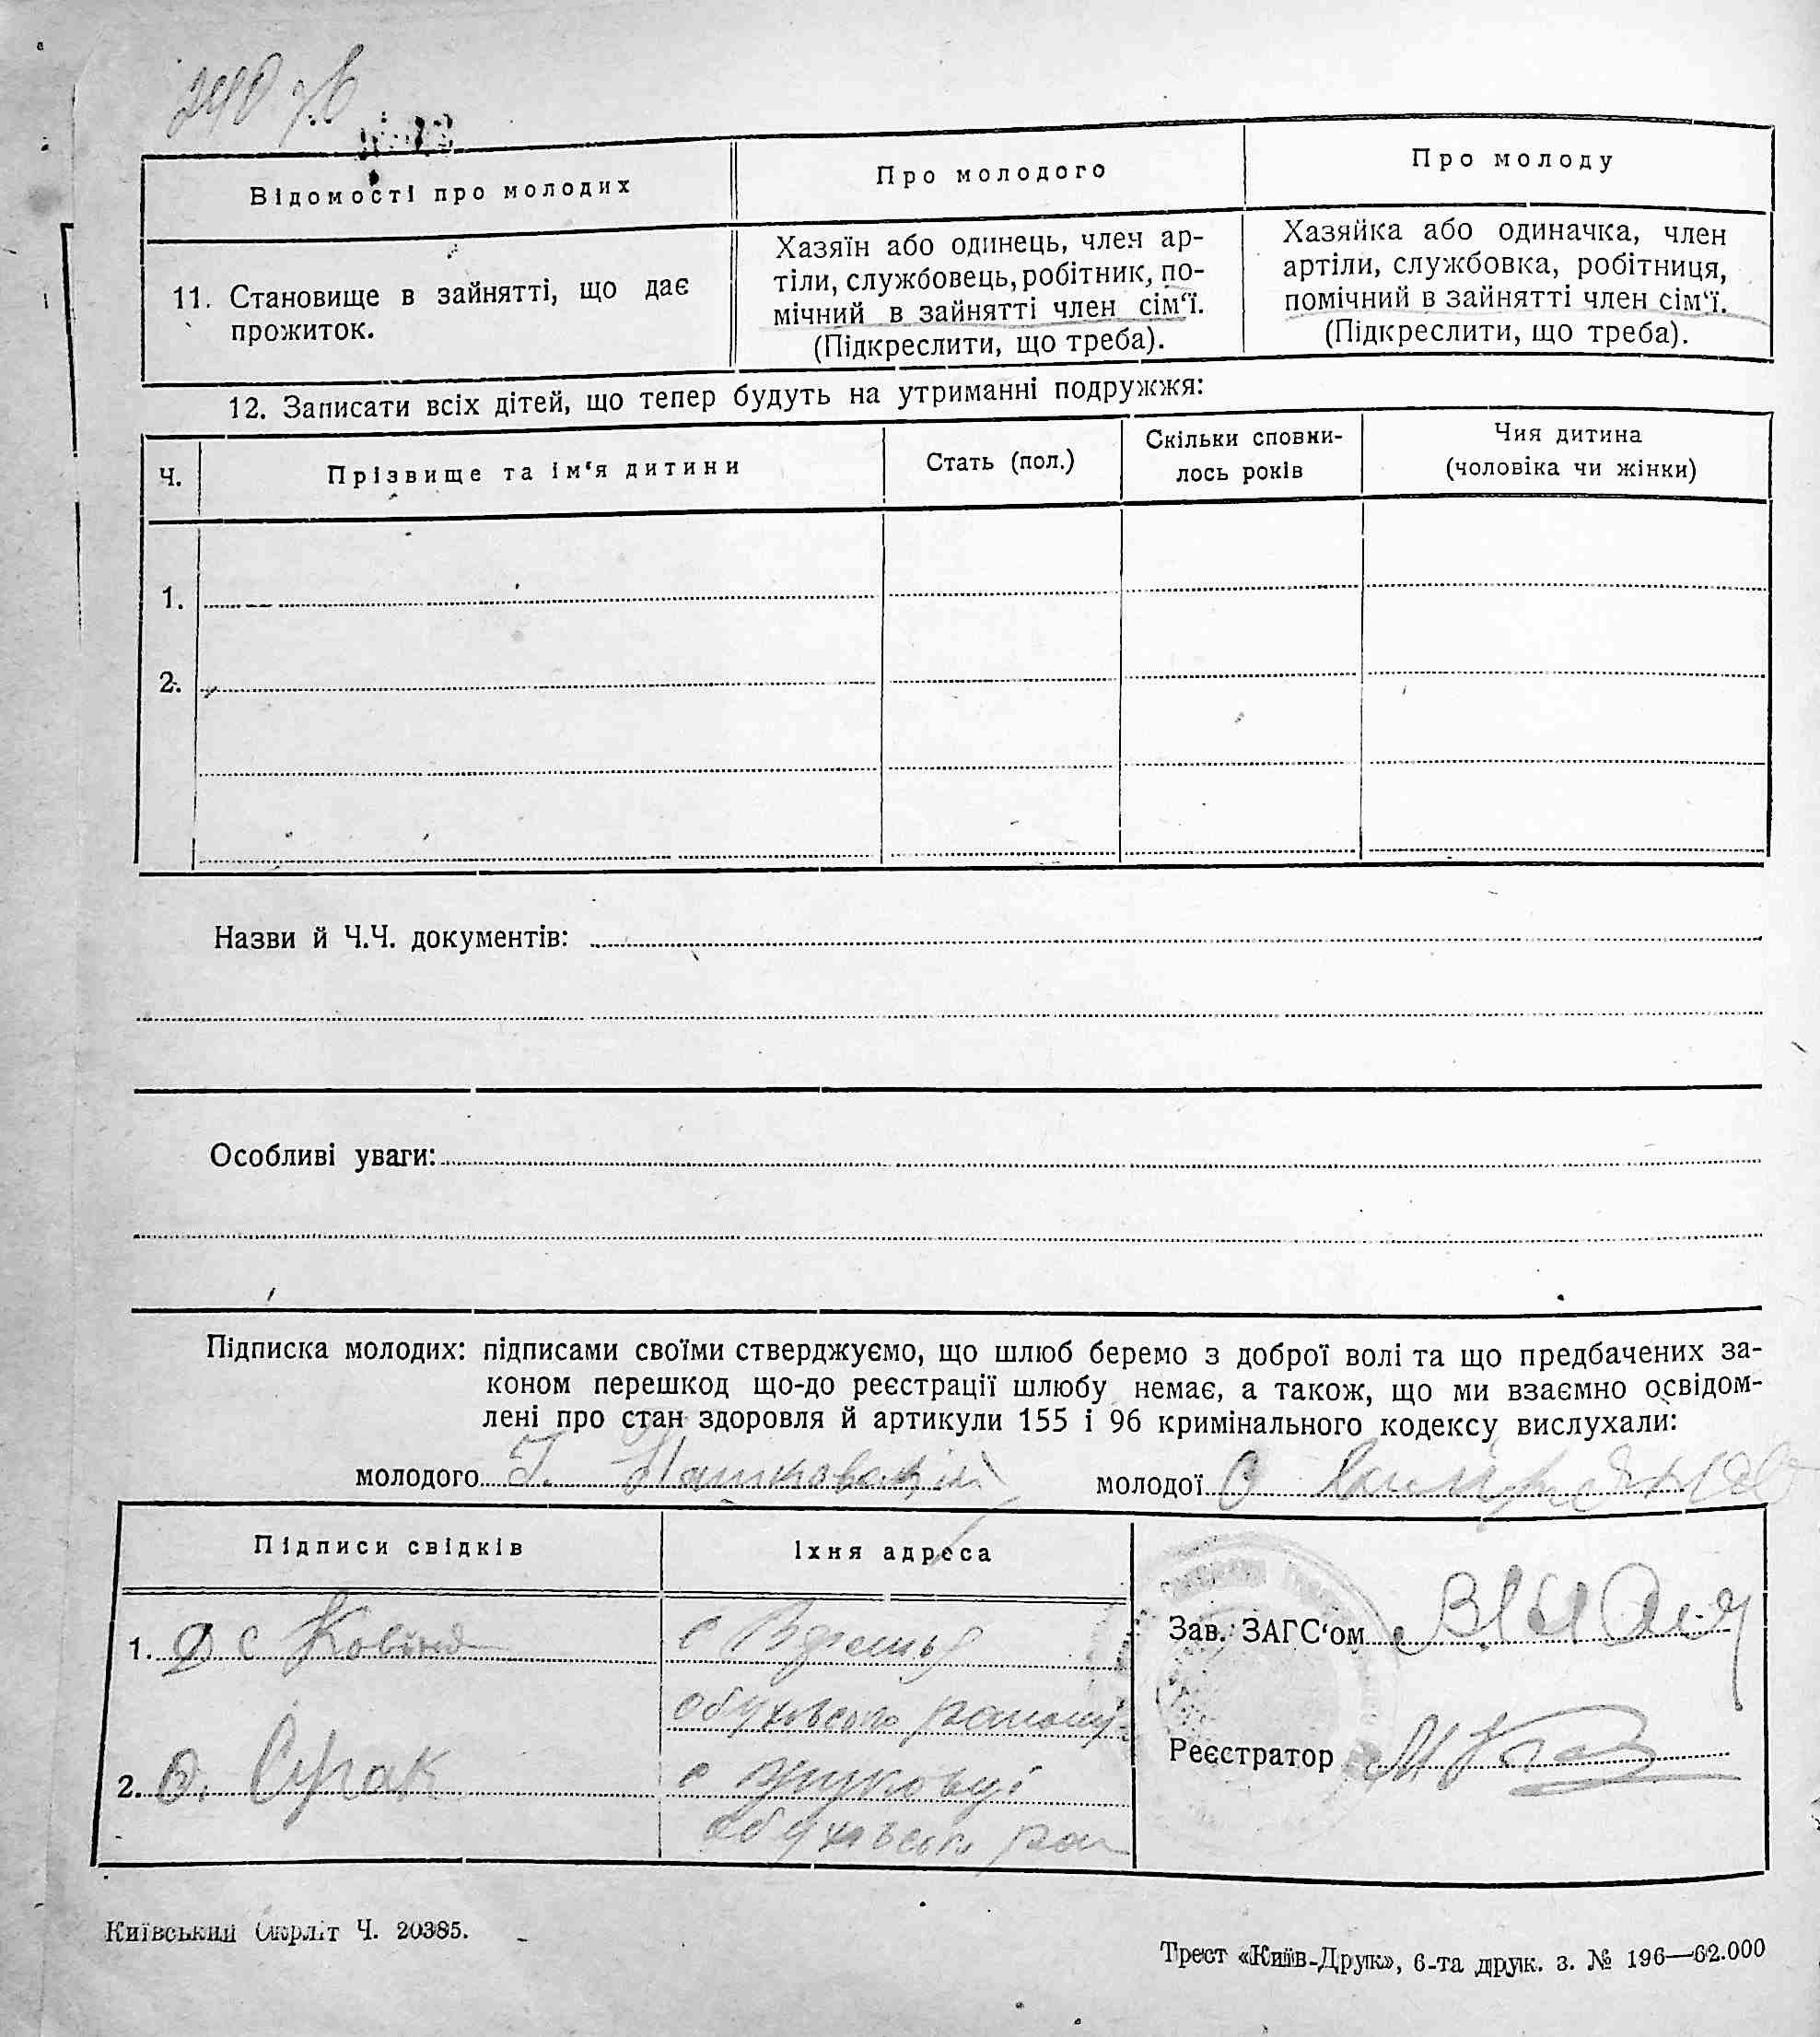 Відомості про молодих
Про молодого
Про молоду
11. Становище в зайнятті, що дає
прожиток.
Хазяїн або одинець, член ар-
тіли, службовець, робітник, по-
мічний в зайнятті член сім‘ї.
(Підкреслити, що треба).
Хазяйка або одиначка, член
артіли, службовка, робітниця,
помічний в зайнятті член сім‘ї.
(Підкреслити, що треба).
12. Записати всіх дітей, що тепер будуть на утриманні подружжя:
Ч.
Прізвище та ім‘я дитини
Стать (пол.)
Скільки сповни-
лось років
Чия дитина
(чоловіка чи жінки)
1.
2.
Назви й Ч.Ч. документів:
Особливі уваги:
Підписка молодих: підписами своїми стверджуємо, що шлюб беремо з доброї волі та що предбачених за-
коном перешкод що-до реєстрації шлюбу немає, а також, що ми взаємно освідом-
лені про стан здоровля й артикули 155 і 96 кримінального кодексу вислухали:
молодого
молодої
Підписи свідків
Їхня адреса
1.
с
Обухівського району
2. О.
с Жуковці
Обухівського рай
Зав. ЗАГС‘ом
Реєстратор
Київський Окрліт Ч. 20385.
Трест «Київ-Друк», 6-та друк. з. № 196—62.000